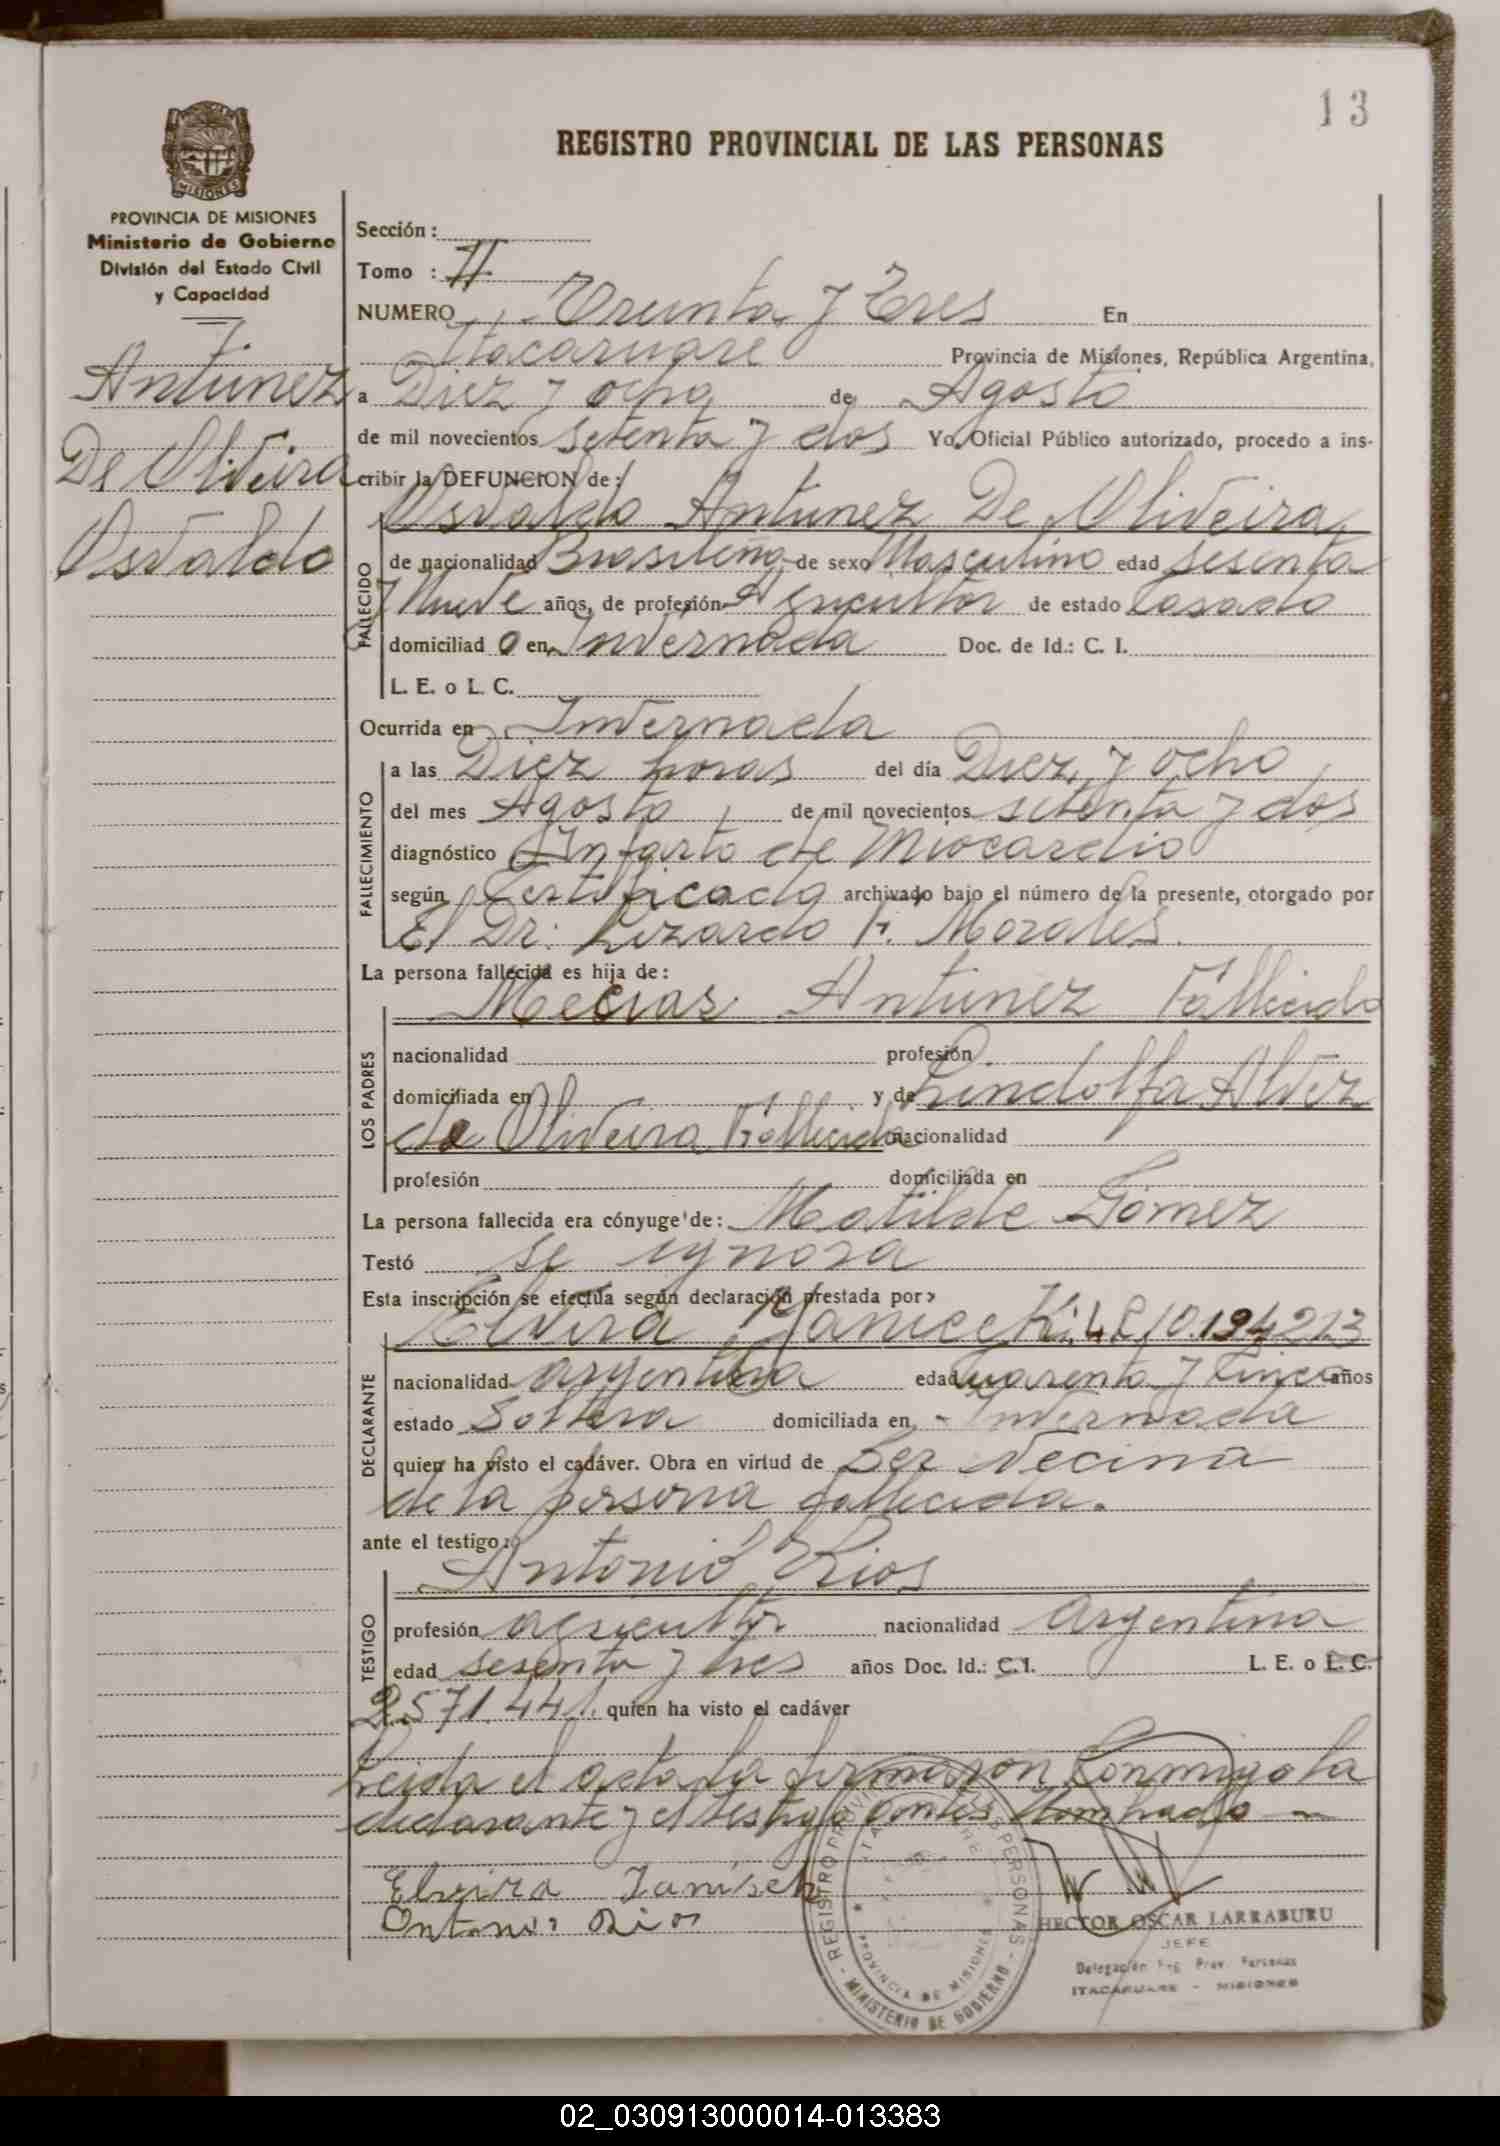 13
REGISTRO PROVINCIAL DE LAS PERSONAS
MISIONES
PROVINCIA DE MISIONES
Ministerio de Gobierno
División del Estado Civil
y Capacidad
Antunez
De Oliveira
Osvaldo
Sección :
Tomo : II
NUMERO Treinta y Tres En
Itacaruare Provincia de Misiones, República Argentina,
a Diez y ocho de Agosto
de mil novecientos setenta y dos Yo, Oficial Público autorizado, procedo a ins-
cribir la DEFUNCION de:
Osvaldo Antunez De Oliveira
FALLECIDO
de nacionalidad Brasileña de sexo Masculino edad sesenta
y Nueve años, de profesión Agricultor de estado Casado
domiciliad o en Invernada Doc. de Id.: C. I.
L. E. o L. C.
Ocurrida en Invernada
FALLECIMIENTO
a las Diez horas del día Diez y ocho
del mes Agosto de mil novecientos setenta y dos
diagnóstico Infarto de Miocardio
según Certificado archivado bajo el número de la presente, otorgado por
El Dr. Lizardo F. Morales.
La persona fallecida es hija de:
LOS PADRES
Mecias Antunez Fallecido
nacionalidad profesión
domiciliada en y de Lindolfa Alvez
de Oliveira Fallecida nacionalidad
profesión domiciliada en
La persona fallecida era cónyuge de: Matilde Gómez
Testó se ignora
Esta inscripción se efectúa según declaración prestada por
DECLARANTE
Elvira Janiceki L.C. 10.194.213
nacionalidad argentina edad Cuarenta y Cinco años
estado Soltera domiciliada en Invernada
quien ha visto el cadáver. Obra en virtud de Ser Vecina
de la persona fallecida.
ante el testigo:
TESTIGO
Antonio Rios
profesión agricultor nacionalidad argentina
edad sesenta y tres años Doc. Id.: C.I. L. E. o L.C.
2.571.441. quien ha visto el cadáver
Leida el acta la firmaron Conmigo la
declarante y el testigo antes Nombrado
Elvira Janisek
Antonio Rios
REGISTRO PROVINCIAL DE LAS PERSONAS
ITACARUARE
PROVINCIA DE MISIONES
MINISTERIO DE GOBIERNO
HECTOR OSCAR LARRABURU
JEFE
Delegación Reg. Prov. Personas
ITACARUARE - MISIONES
02_030913000014-013383